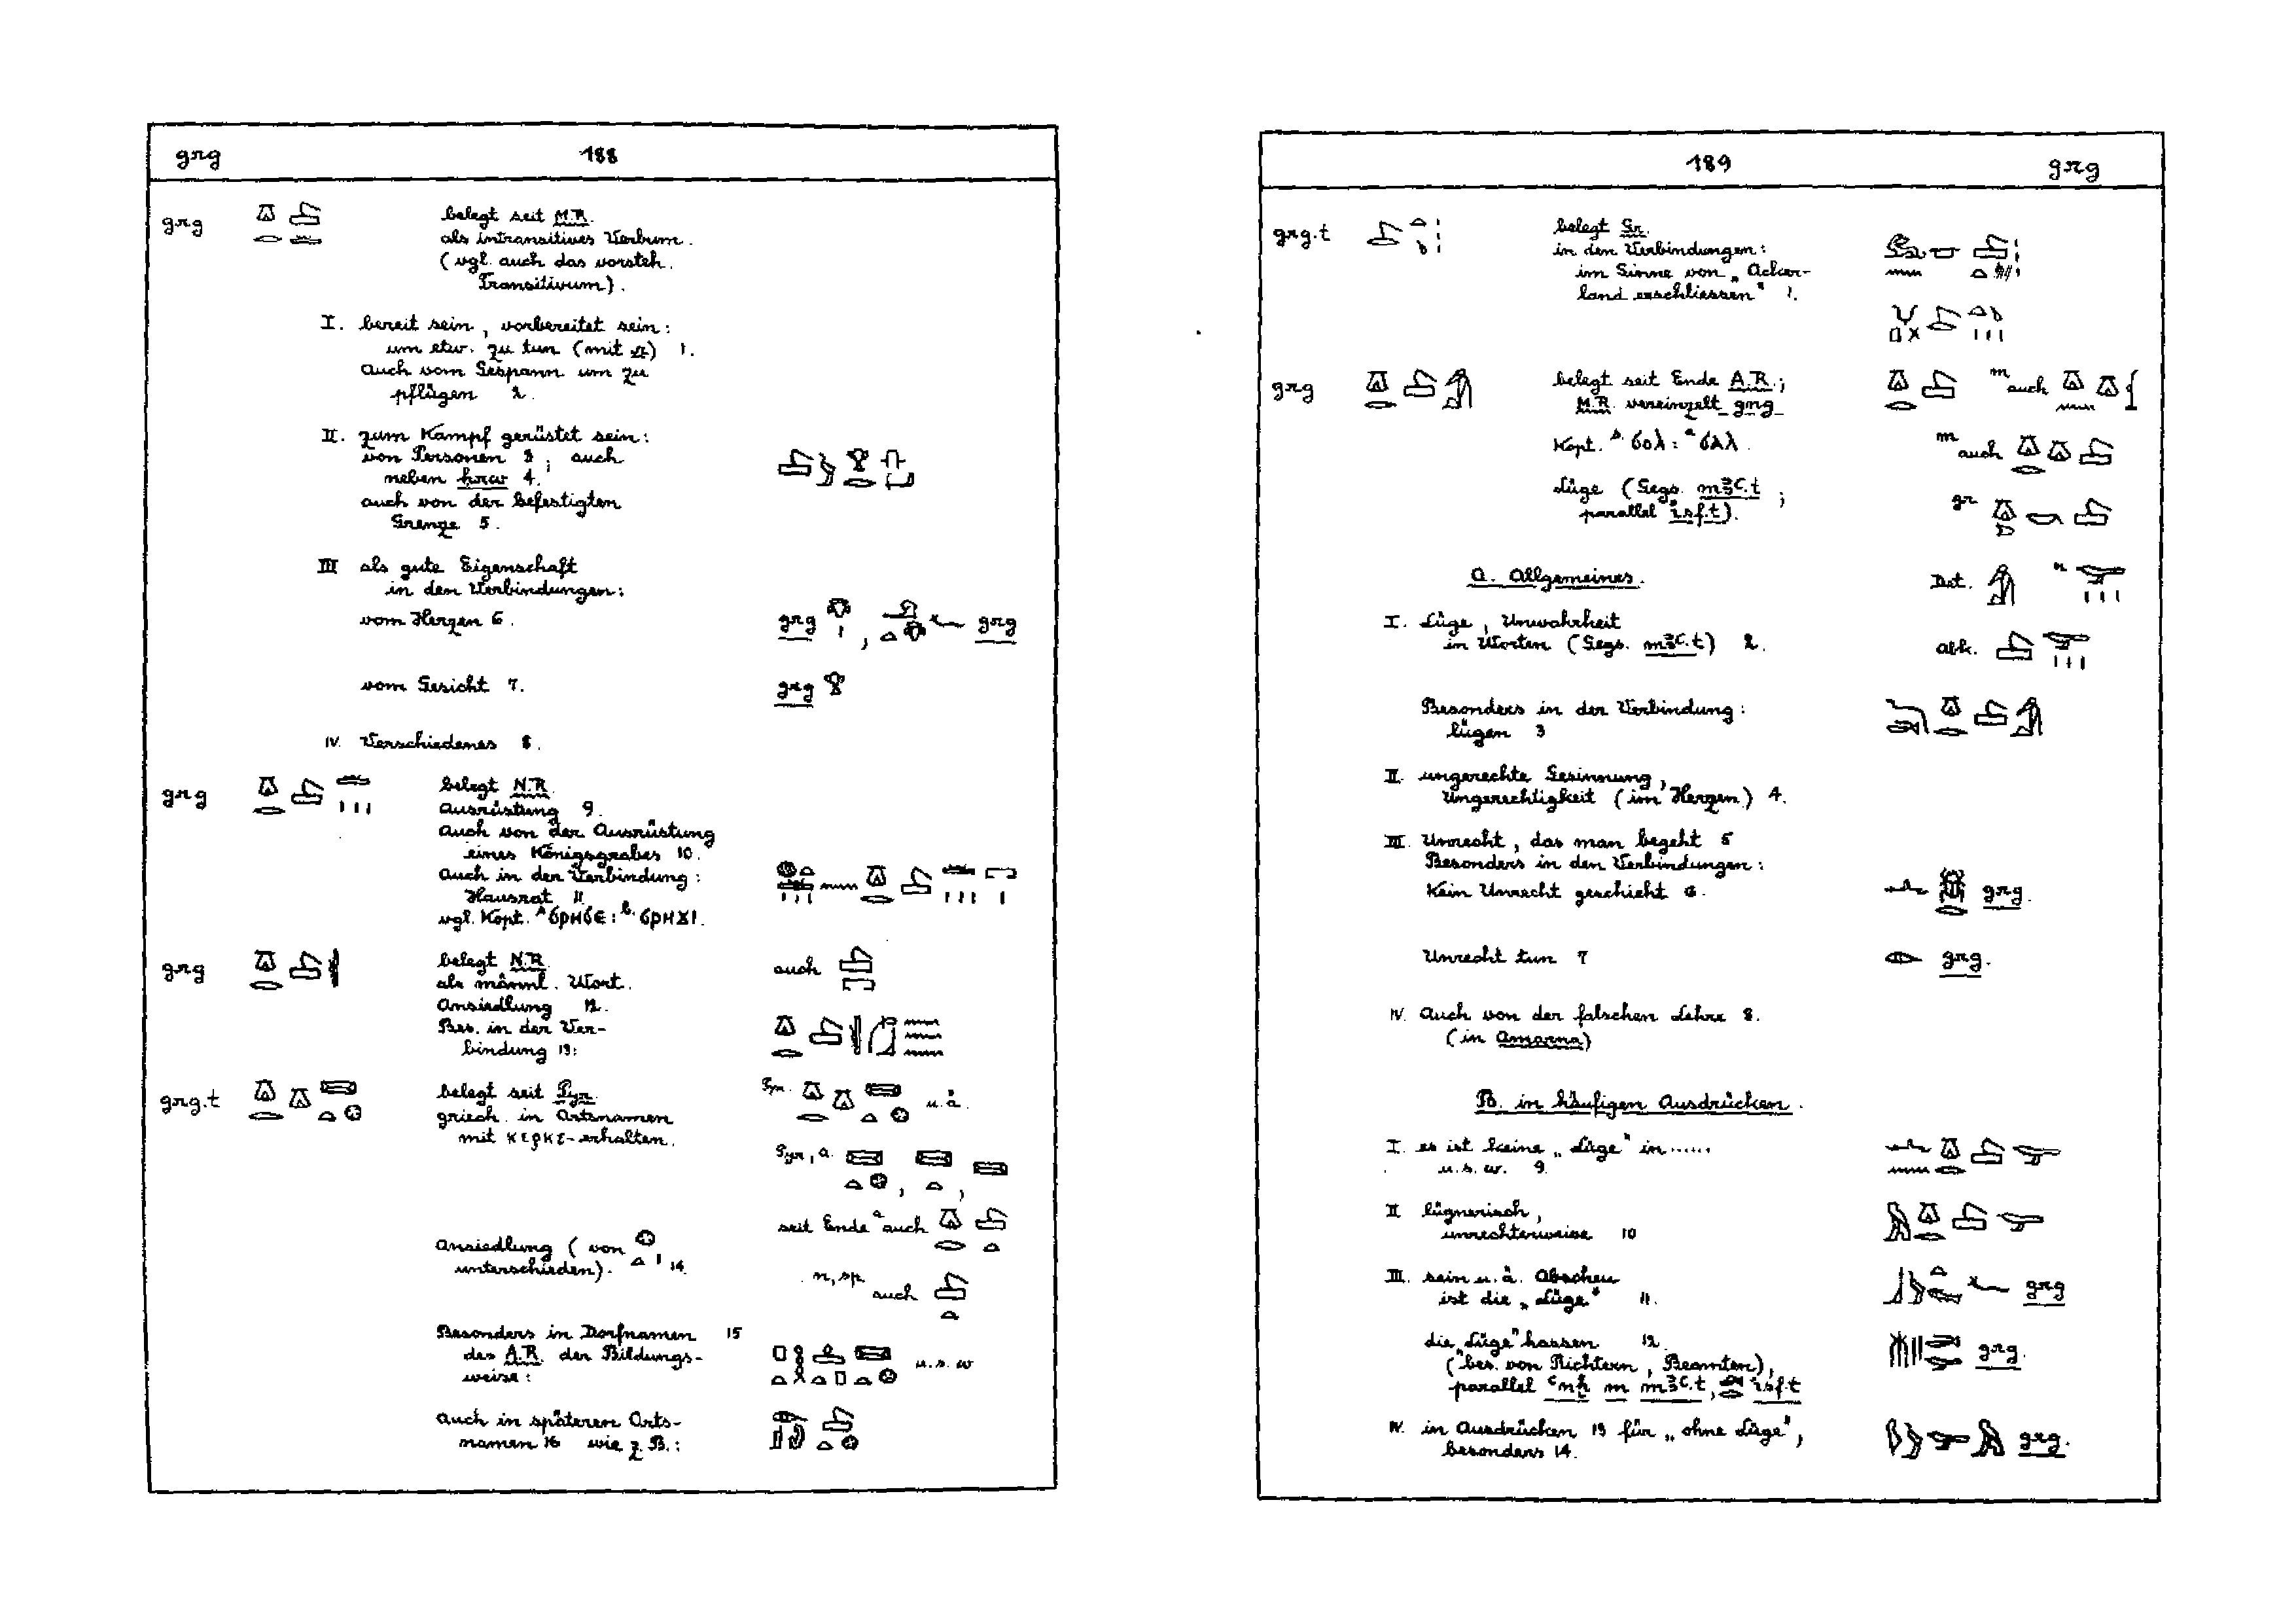 grg 188
grg belegt seit M.R.
als intransitives Verbum.
(vgl. auch das vorsteh.
Transitivum).
I. bereit sein, vorbereitet sein:
um etw. zu tun (mit r) 1.
Auch vom Gespann um zu
pflügen 2.
II. zum Kampf gerüstet sein:
von Personen 3; auch
neben ḥrw 4.
auch von der befestigten
Grenze 5.
III als gute Eigenschaft
in den Verbindungen:
vom Herzen 6. grg , grg
vom Gesicht 7. grg
IV. Verschiedenes 8.
grg belegt N.R.
Ausrüstung 9.
Auch von der Ausrüstung
eines Königsgrabes 10.
Auch in der Verbindung:
Hausrat 11.
vgl. Kopt. ϭⲣⲏϭⲉ: ϭⲣⲏϫⲓ.
grg belegt N.R. auch
als männl. Wort.
Ansiedlung 12.
Bes. in der Ver-
bindung 13:
grg.t belegt seit Pyr. Pyr. u.ä.
griech. in Ortsnamen
mit κερκε- erhalten.
Pyr., a. , ,
seit Ende a auch
Ansiedlung (von
unterschieden). 14.
n, sp. auch
Besonders in Dorfnamen 15
des A.R. der Bildungs- u.s.w
weise:
auch in späteren Orts-
namen 16 wie z.B.:
189 grg
grg.t belegt Gr.
in den Verbindungen:
im Sinne von „Acker-
land erschliessen" 1.
grg belegt seit Ende A.R.; m auch
M.R. vereinzelt gng
Kopt. ϭⲟⲗ: ϭⲁⲗ. m auch
Lüge (Gegs. mꜣꜥ.t;
parallel isf.t). gr
A. Allgemeines. Det. n
I. Lüge, Unwahrheit
in Worten (Gegs. mꜣꜥ.t) 2. abk.
Besonders in der Verbindung:
lügen 3
II. ungerechte Gesinnung,
Ungerechtigkeit (im Herzen) 4.
III. Unrecht, das man begeht 5
Besonders in den Verbindungen:
Kein Unrecht geschieht 6. grg.
Unrecht tun 7 grg.
IV. Auch von der falschen Lehre 8.
(in Amarna)
B. in häufigen Ausdrücken.
I. es ist keine „Lüge" in......
u.s.w. 9.
II lügnerisch,
unrechterweise 10
III. sein u.ä. Abscheu
ist die „Lüge" 11. grg
die „Lüge" hassen 12.
(bes. von Richtern, Beamten), grg.
parallel ꜥnḫ m mꜣꜥ.t, isf.t
IV. in Ausdrücken 13 für „ohne Lüge",
besonders 14. grg.